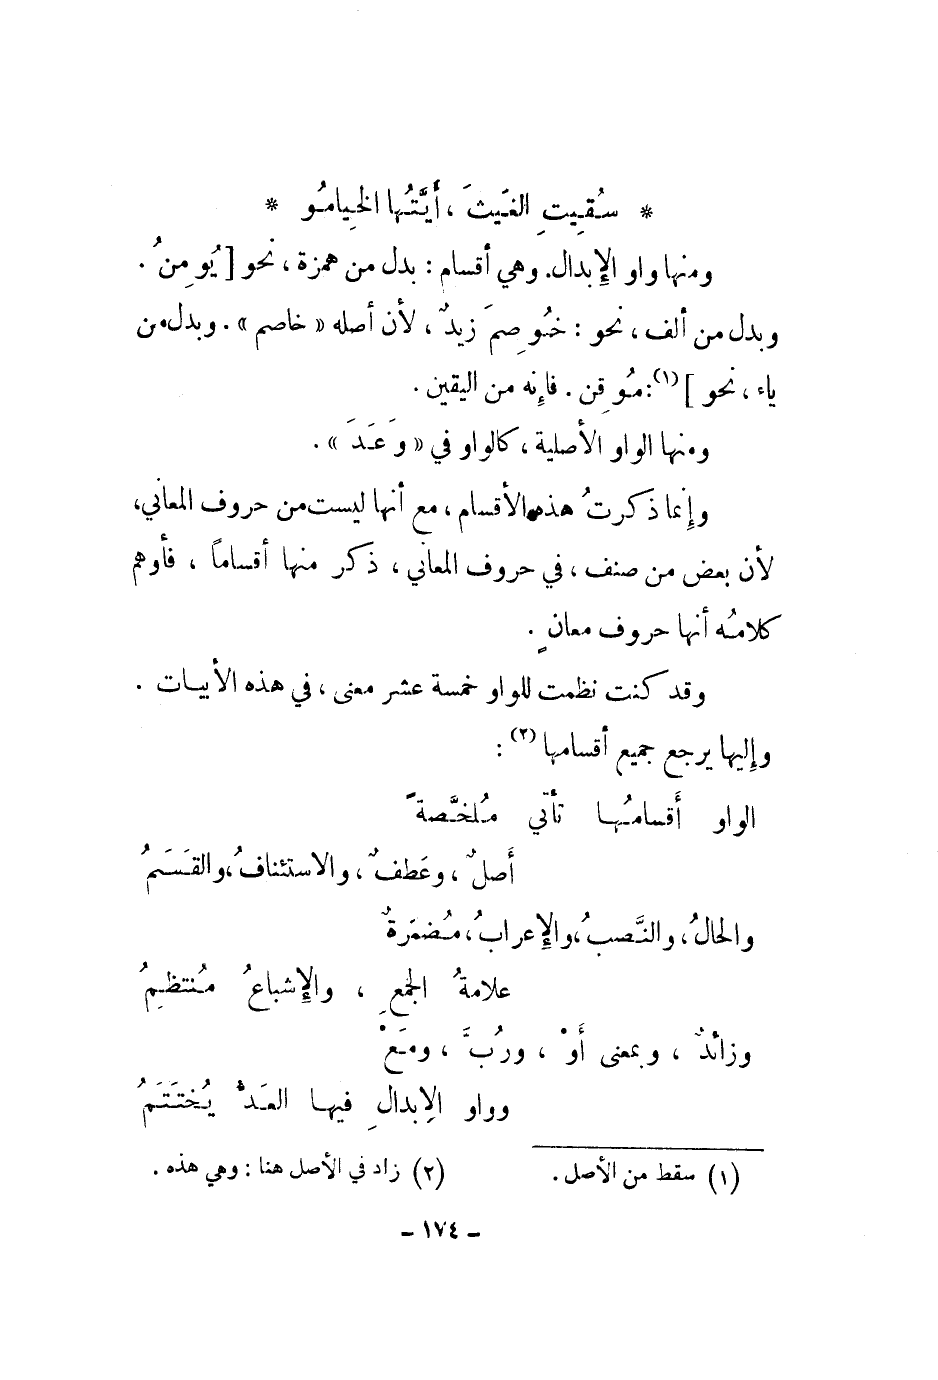 * سُقِيتِ الغَيثَ ، أَيَّتُها الخِيامُو *
ومنها واو الإبدال. وهي أقسام : بدل من همزة ، نحو [ يُومِنُ .
وبدل من ألف ، نحو : خُوصِمَ زيدٌ ، لأن أصله « خاصم » . وبدل من
ياء ، نحو ](١): مُوقِن . فإنه من اليقين .
ومنها الواو الأصلية ، كالواو في « وَعَدَ » .
وإنما ذكرتُ هذه الأقسام ، مع أنها ليست من حروف المعاني،
لأن بعض من صنف ، في حروف المعاني ، ذكر منها أقساماً ، فأوهم
كلامُه أنها حروف معانٍ .
وقد كنت نظمت للواو خمسة عشر معنى ، في هذه الأبيات .
وإليها يرجع جميع أقسامها (٢) :
الواو أَقسامُها تأتي مُلخَّصةً
أَصلٌ ، وعَطفٌ ، والاستئنافُ ،والقَسَمُ
والحالُ ، والنَّصبُ ،والإعرابُ ، مُضمَرةٌ
علامةُ الجمعِ ، والإشباعُ مُنتظِمُ
وزائدٌ ، وبمعنى أَوْ ، ورُبَّ ، ومَعْ
وواو الإبدالِ فيها العَدُّ يُختَتَمُ
(١) سقط من الأصل . (٢) زاد في الأصل هنا : وهي هذه .
- ١٧٤ -